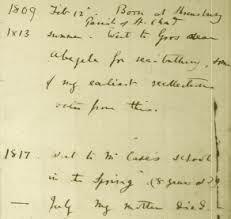 1809 Feb 12th Born at Shrewsbury
Parish of St. Chad
1813 summer. Went to Gros near
Abergele for sea-bathing, some
of my earliest recollections
date from this.
1817. went to Mr Case's school
in the Spring (8 years old)
— July My mother died